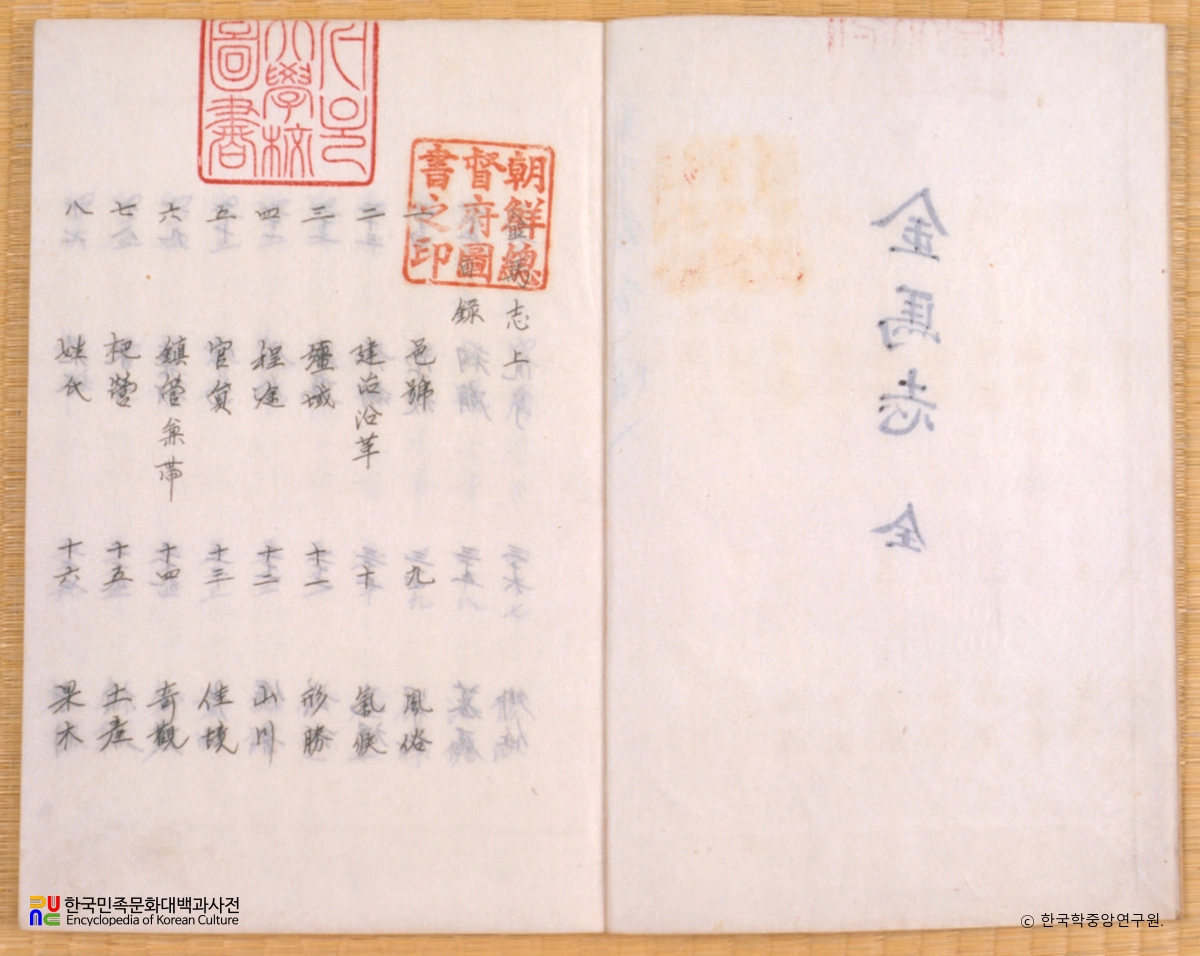 金馬志 全
金馬志上
目録
一 邑號 九 風俗
二 建治沿革 十 氣候
三 壃域 十一 形勝
四 程途 十二 山川
五 官員 十三 佳境
六 鎮營兼帶 十四 奇觀
七 杷營 十五 土産
八 姓氏 十六 果木
朝鮮總
督府圖
書之印
大學校
圖書
한국민족문화대백과사전
Encyclopedia of Korean Culture
ⓒ 한국학중앙연구원.